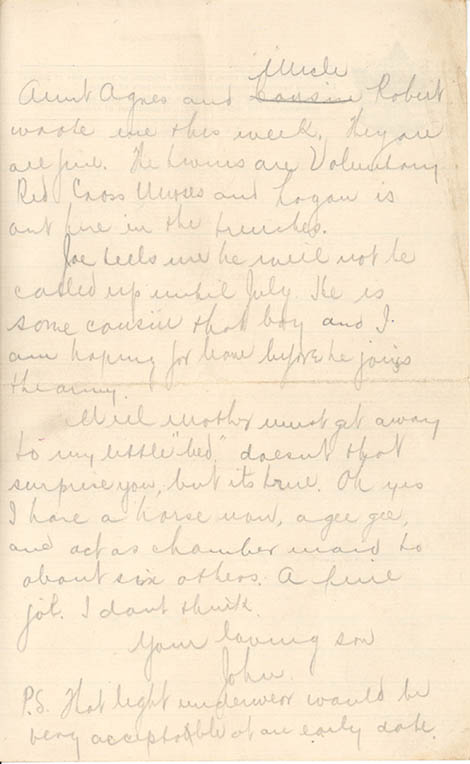 Uncle
Aunt Agnes and cousin Robert
wrote me this week. They are
all fine. The twins are Voluntary
Red Cross Nurses and Logan is
out here in the trenches.
Joe tells me he will not be
called up until July. He is
some cousin that boy and I
am hoping for home before he joins
the army.
Well mother must get away
to my little "bed," doesnt that
surprise you, but its true. Oh yes
I have a horse now, a gee gee,
and act as chamber maid to
about six others. A fine
job. I dont think.
Your loving son
John.
P.S. That light underwear would be
very acceptable at an early date.